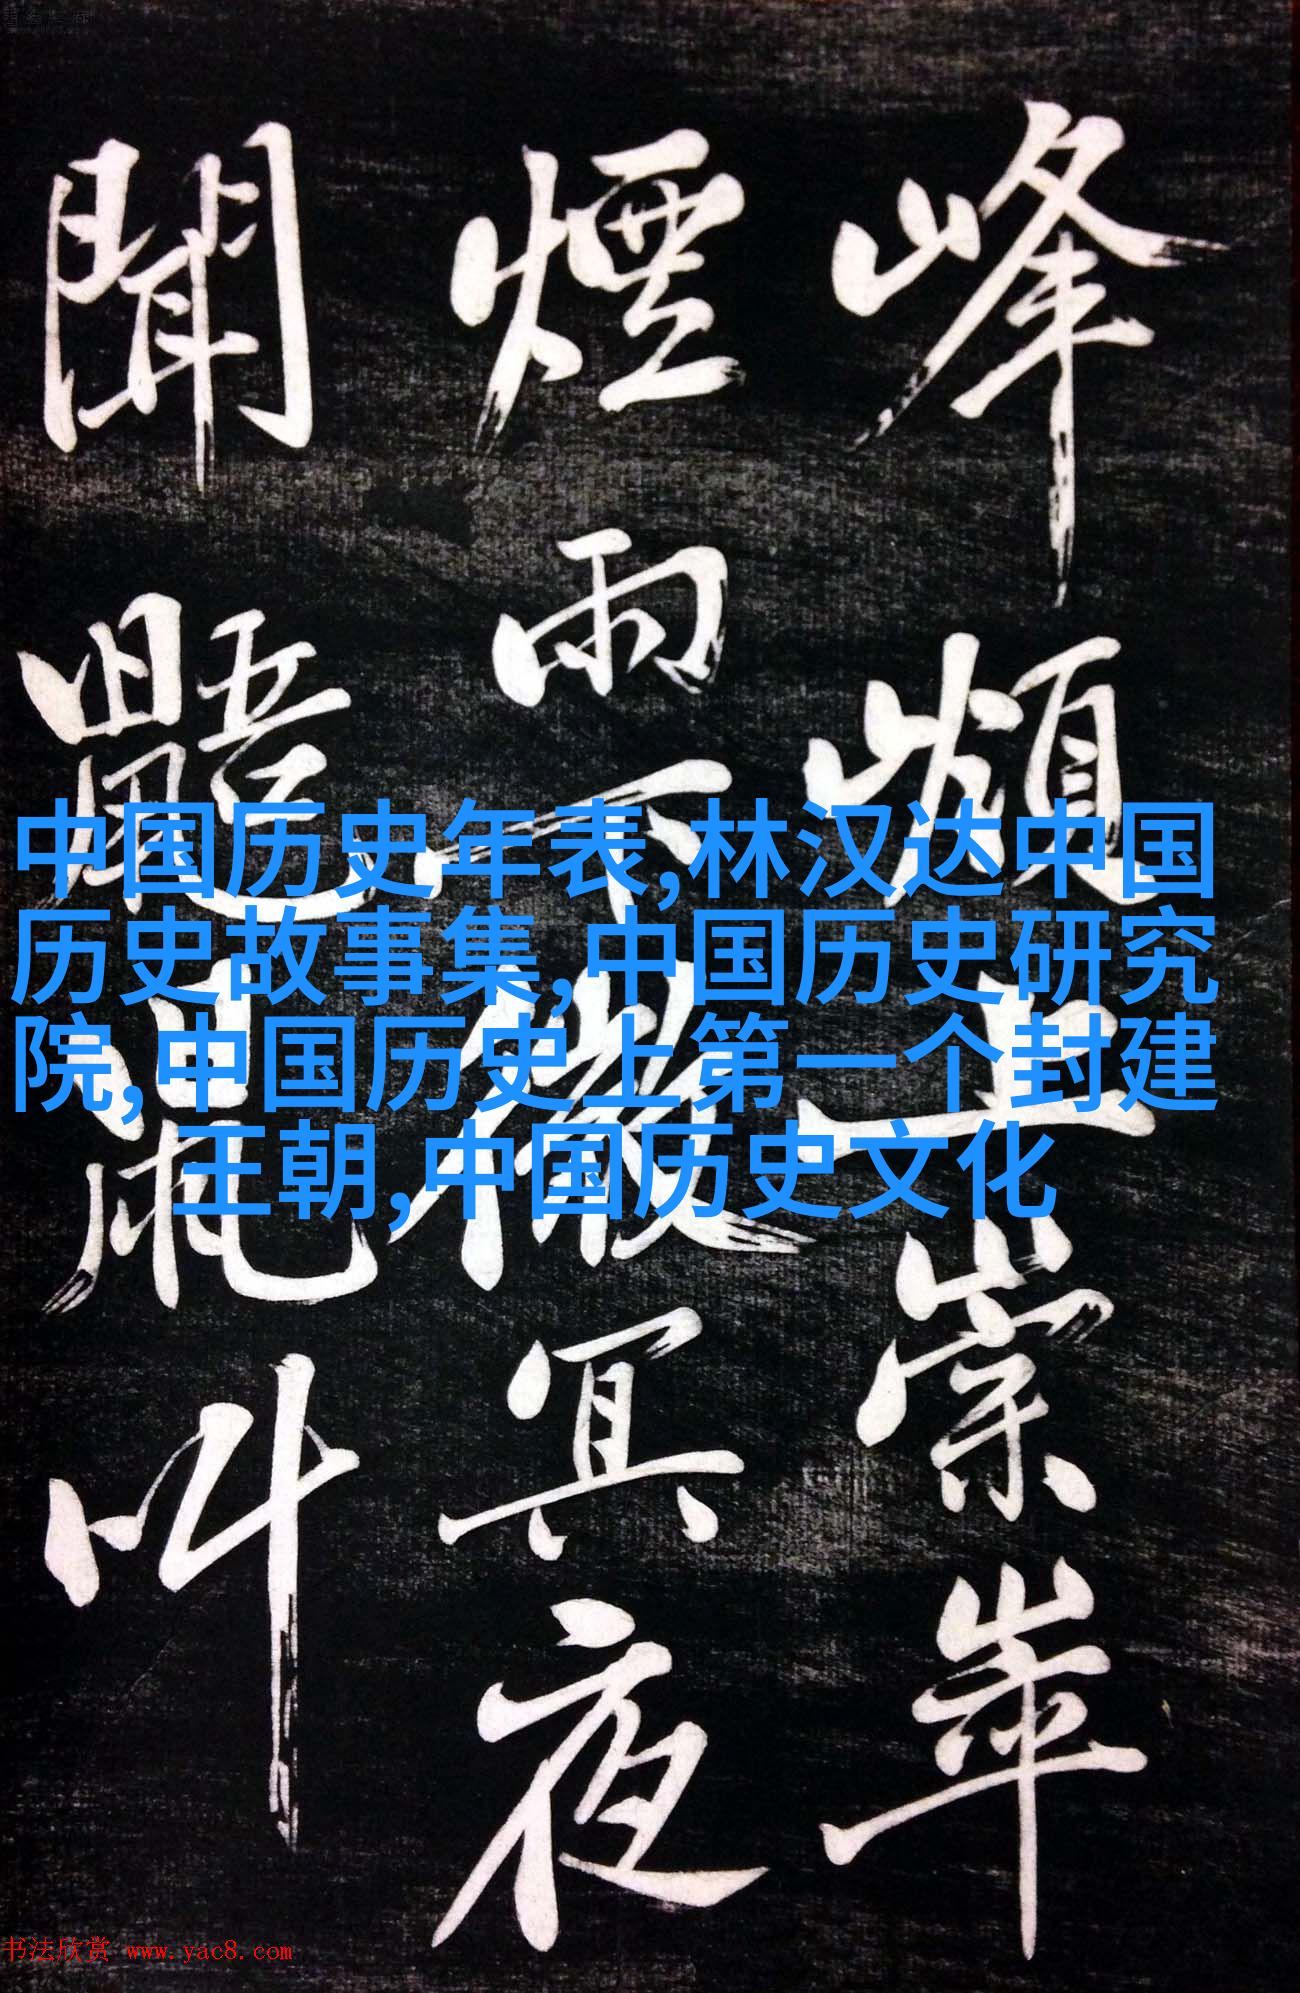 峰上崇崒
煙雨下微冥夜
聞鼯鼠叫
中国历史年表,林汉达中国
历史故事集,中国历史研究
院,中国历史上第一个封建
王朝,中国历史文化
书法欣赏 www.yac8.com